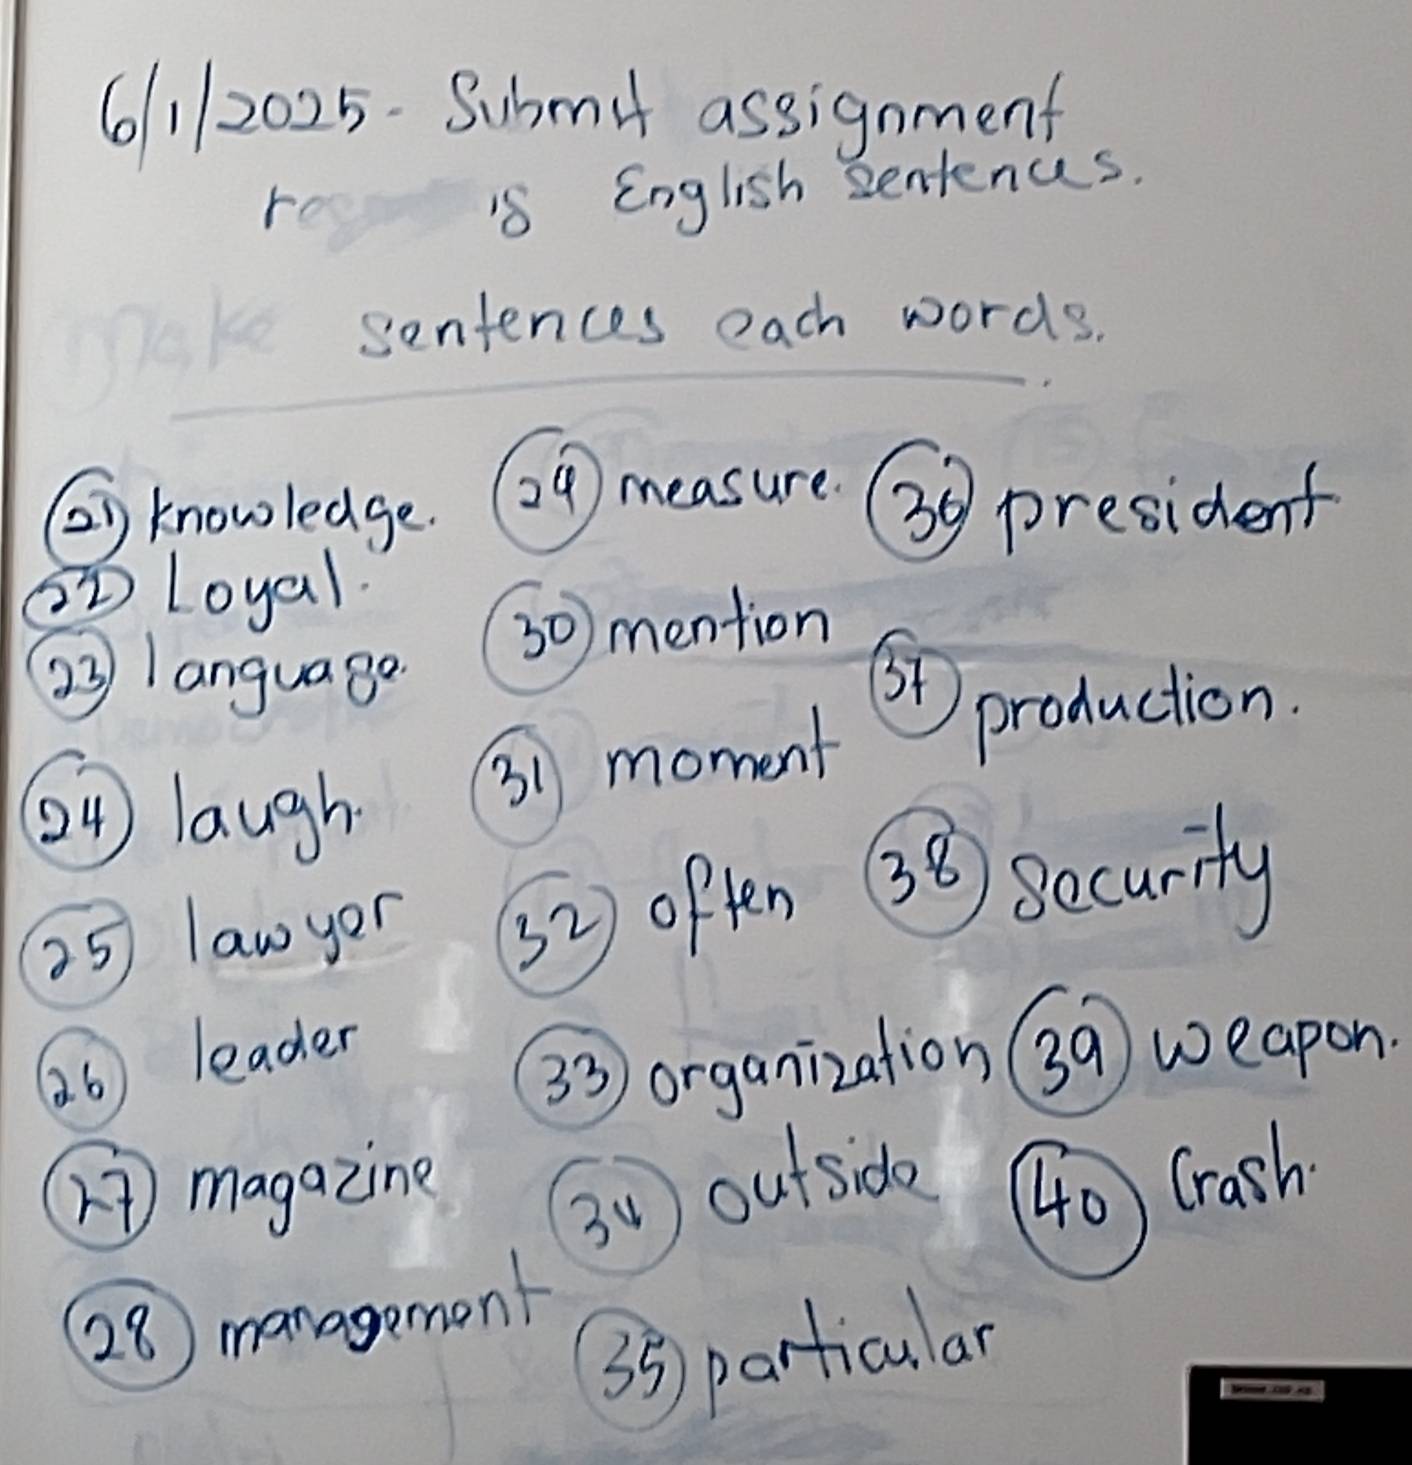 6/1/2025 - Submit assignment
is English sentences.
Make sentences each words.
21 knowledge.
22 Loyal.
23 language.
24 laugh.
25 lawyer
26 leader
27 magazine
28 management
29 measure.
30 mention
31 moment
32 often
33 organization
34 outside
35 particular
36 president
37 production.
38 Security
39 weapon.
40 Crash.